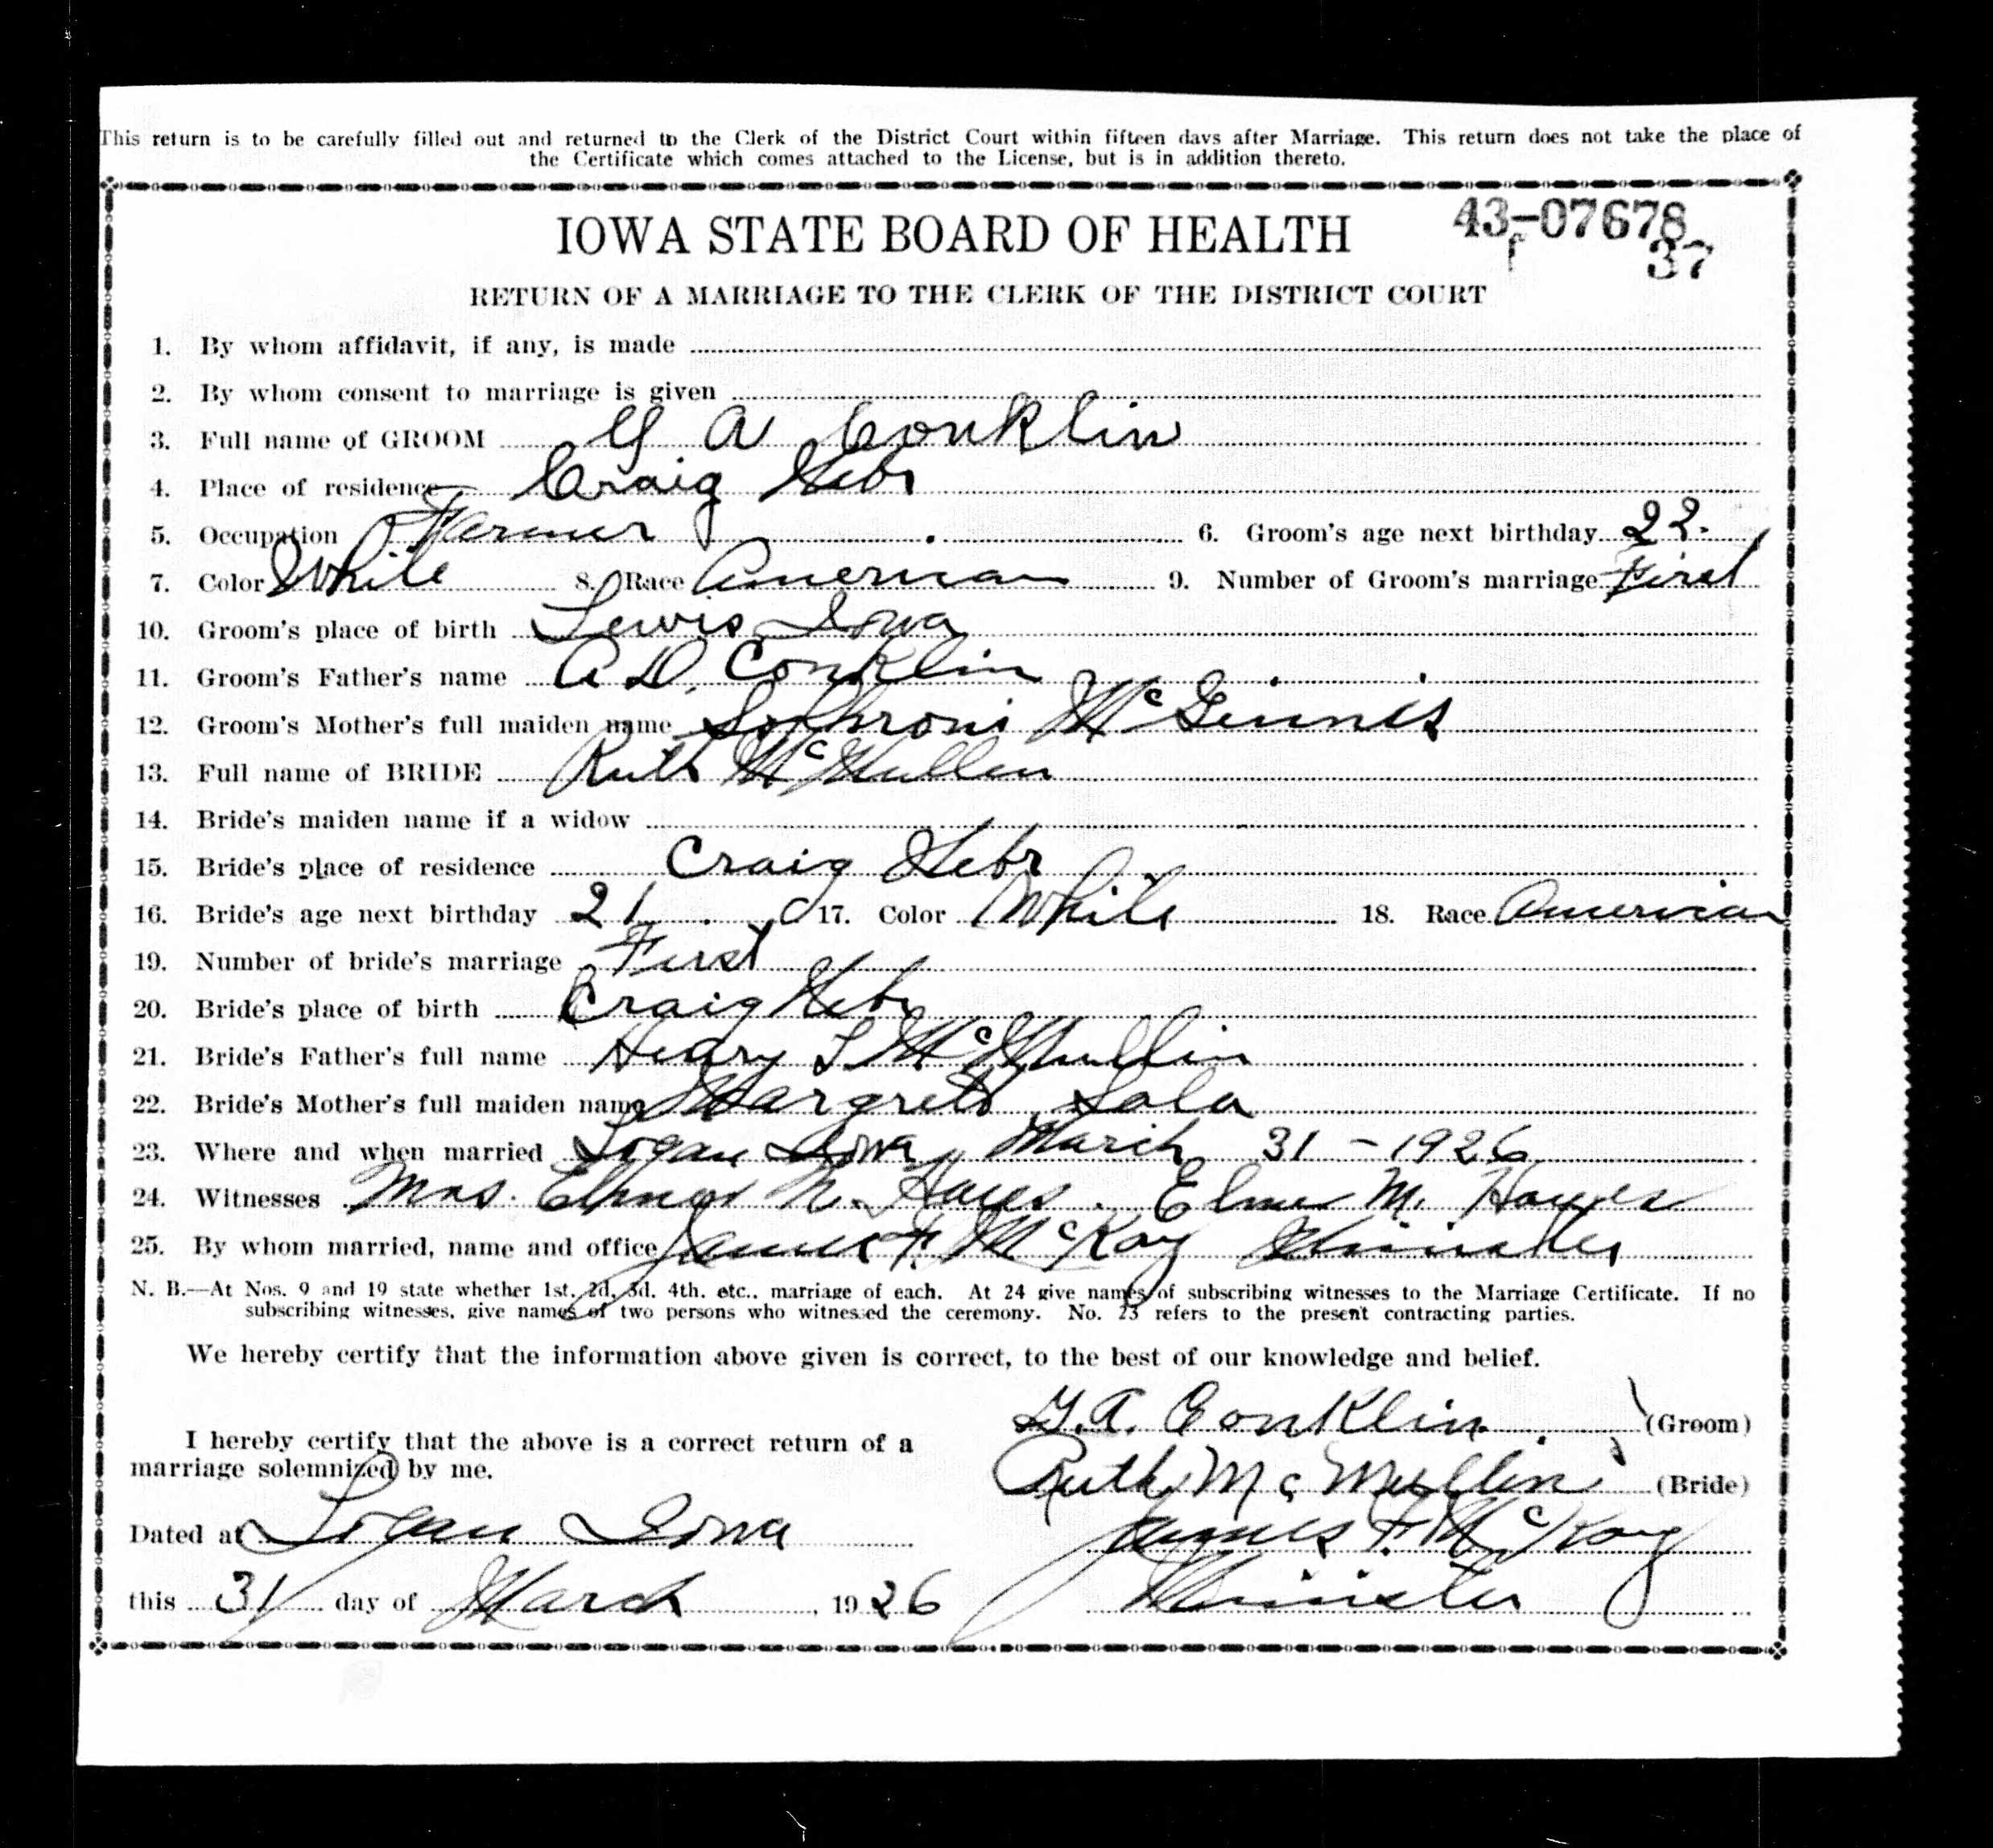 This return is to be carefully filled out and returned to the Clerk of the District Court within fifteen days after Marriage. This return does not take the place of
the Certificate which comes attached to the License, but is in addition thereto.
IOWA STATE BOARD OF HEALTH
43-07678
37
RETURN OF A MARRIAGE TO THE CLERK OF THE DISTRICT COURT
1. By whom affidavit, if any, is made
2. By whom consent to marriage is given
3. Full name of GROOM A Conklin
4. Place of residence Craig Nebr
5. Occupation Farmer 6. Groom's age next birthday 22.
7. Color White 8. Race American 9. Number of Groom's marriage First
10. Groom's place of birth Lewis Iowa
11. Groom's Father's name A D. Conklin
12. Groom's Mother's full maiden name Sophroni McGinnis
13. Full name of BRIDE Ruth McMullen
14. Bride's maiden name if a widow
15. Bride's place of residence Craig Nebr
16. Bride's age next birthday 21 17. Color White 18. Race American
19. Number of bride's marriage First
20. Bride's place of birth Craig Nebr
21. Bride's Father's full name Henry L McMullin
22. Bride's Mother's full maiden name Margret
23. Where and when married Logan Iowa March 31 - 1926
24. Witnesses Mrs. N. Hawes. M. Hawes
25. By whom married, name and office James F. McKay Minister
N. B.—At Nos. 9 and 19 state whether 1st. 2d, 3d. 4th. etc.. marriage of each. At 24 give names of subscribing witnesses to the Marriage Certificate. If no
subscribing witnesses, give names of two persons who witnessed the ceremony. No. 23 refers to the present contracting parties.
We hereby certify that the information above given is correct, to the best of our knowledge and belief.
A. Conklin (Groom)
I hereby certify that the above is a correct return of a
marriage solemnized by me.
Ruth McMullin (Bride)
Dated at Logan Iowa
James F. McKay
this 31 day of March, 1926
Minister